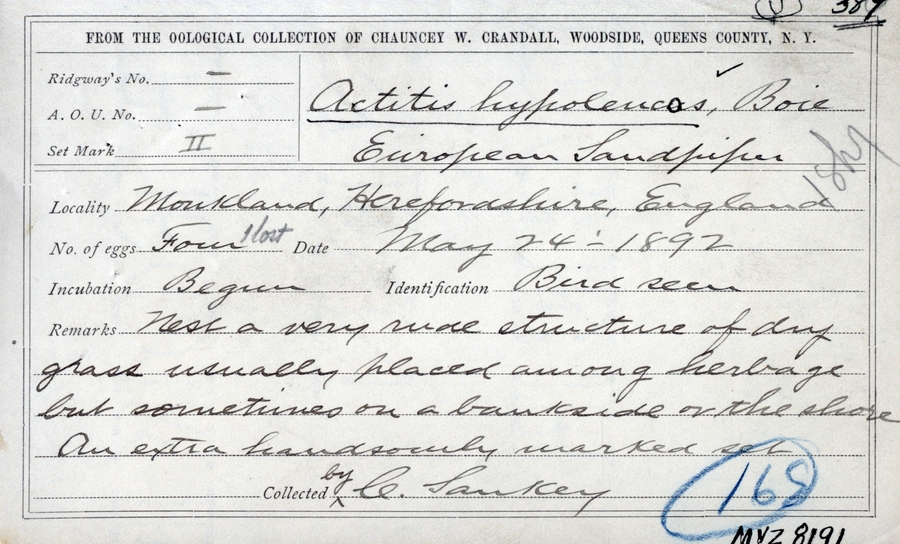 389
FROM THE OOLOGICAL COLLECTION OF CHAUNCEY W. CRANDALL, WOODSIDE, QUEENS COUNTY, N. Y.
Ridgway's No. —
A. O. U. No. —
Set Mark II
Actitis hypoleucos, Boie
European Sandpiper
Locality Monkland, Herefordshire, England
No. of eggs Four 1 lost Date May 24 - 1892
Incubation Begun Identification Bird seen
Remarks Nest a very rude structure of dry
grass usually placed among herbage
but sometimes on a bankside or the shore
An extra handsomely marked set
Collected by C. Sankey
168
MVZ 8191